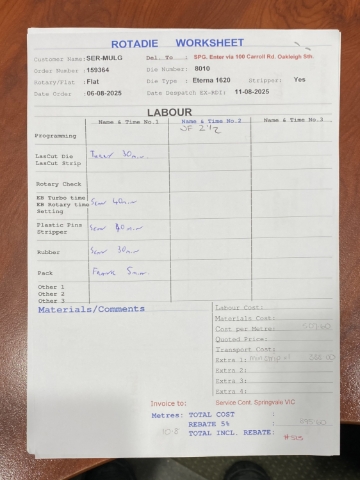 ROTADIE WORKSHEET
Customer Name: SER-MULG Del. To : SPG, Enter via 100 Carroll Rd. Oakleigh Sth.
Order Number :159364 Die Number : 8010
Rotary/Flat :Flat Die Type : Eterna 1620 Stripper: Yes
Date Order : 06-08-2025 Date Despatch EX-RDI: 11-08-2025
LABOUR
Name & Time No.1 Name & Time No.2 Name & Time No.3
Programming
LasCut Die 30min
LasCut Strip
Rotary Check
EB Turbo time 40min
EB Rotary time
Setting
Plastic Pins
Stripper
Rubber 30min
Pack FRANK 5min
Other 1
Other 2
Other 3
Materials/Comments
Labour Cost:
Materials Cost:
Cost per Metre:
Quoted Price:
Transport Cost:
Extra 1:
Extra 2:
Extra 3:
Extra 4:
Invoice to: Service Cont. Springvale VIC
Metres: TOTAL COST :
REBATE 5% :
TOTAL INCL. REBATE: